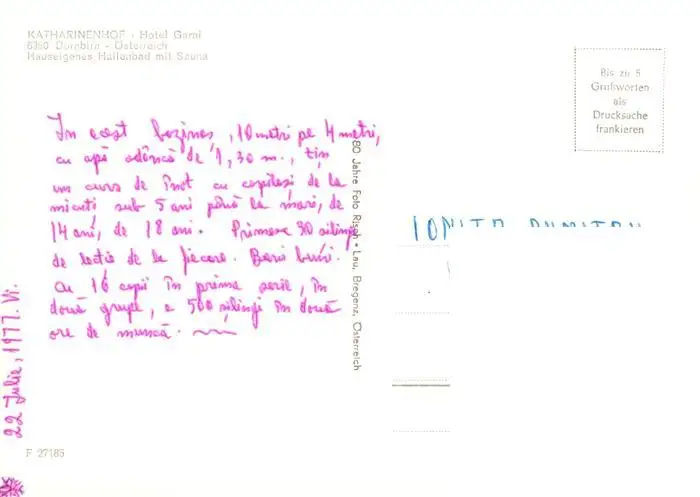 KATHARINENHOF · Hotel Garni
6850 Dornbirn - Österreich
Hauseigenes Hallenbad mit Sauna
Bis zu 5
Grußworten
als
Drucksache
frankieren
In acest bazines, 10 metri pe 4 metri,
cu apă adâncă de 1,30 m., țin
un curs de înot cu copilași de la
micuți sub 5 ani până la mari, de
14 ani, de 18 ani. Primesc 30 șilingi
de lecție de la fiecare. Bani buni.
Cu 16 copii în prima serie, în
două grupe, e 500 șilingi în două
ore de muncă.
22 Julie, 1977. Vi.
80 Jahre Foto Risch - Lau, Bregenz, Österreich
IONITA DUMITRU
F 27185